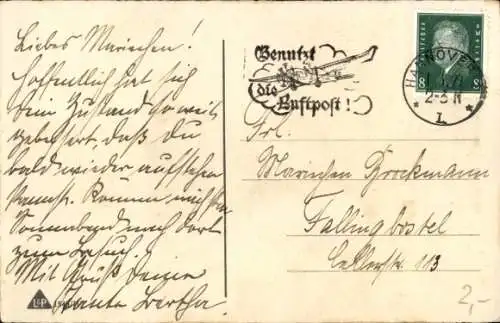 Liebes Mariechen!
Hoffentlich hat sich
dein Zustand so weit
gebessert, daß du
bald wieder aufstehen
kannst. Komme nächsten
Sonnabend nach dort
zum Besuch.
Mit Gruß Deine
Tante Bertha.
Benutzt
die
Luftpost!
HANNOVER
2-3 N
* 1. *
8 8
Frl.
Mariechen Brockmann
Fallingbostel
Cellerstr. 113
L&P
2,-